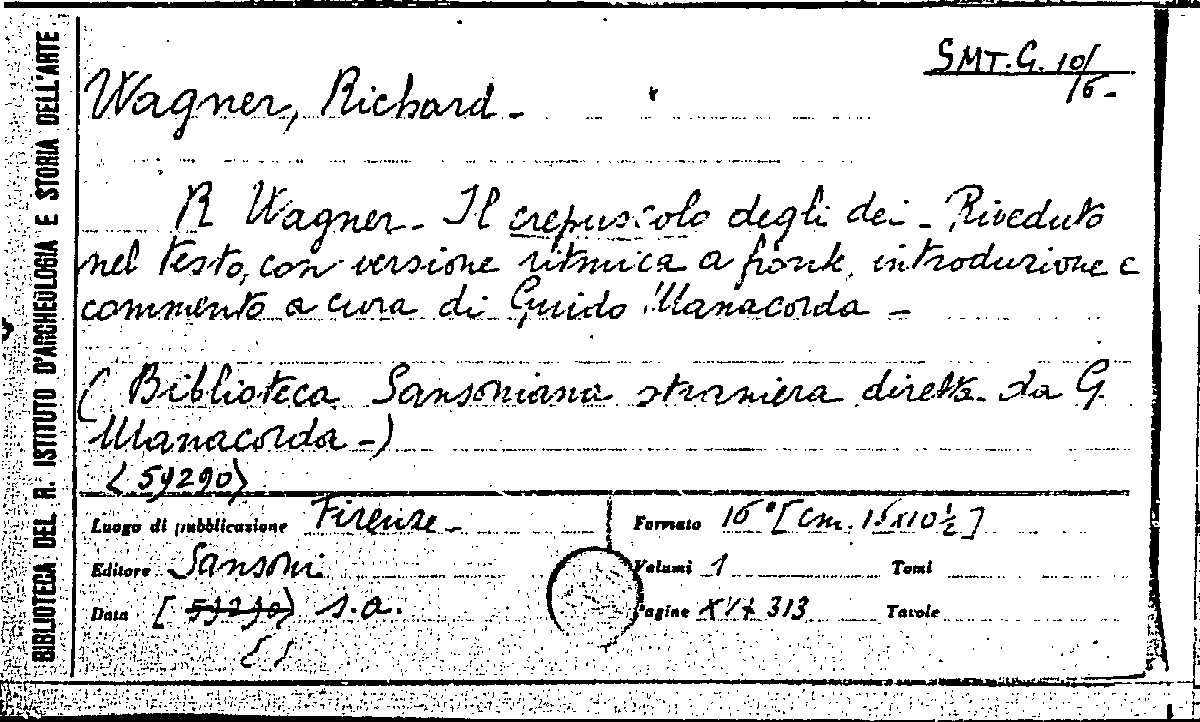 BIBLIOTECA DEL R. ISTITUTO D'ARCHEOLOGIA E STORIA DELL'ARTE
SMT.G. 10/
/6-
Wagner, Richard -
R Wagner - Il crepuscolo degli dei - Riveduto
nel testo, con versione ritmica a fronte, introduzione e
commento a cura di Guido Manacorda -
( Biblioteca Sansoniana straniera diretta da G.
Manacorda -)
<59290>
Luogo di pubblicazione Firenze -
Formato 16° [cm. 15x10½]
Editore Sansoni
Volumi 1 Tomi
Data [ 59290) s.a.
Pagine XVI+ 313 Tavole